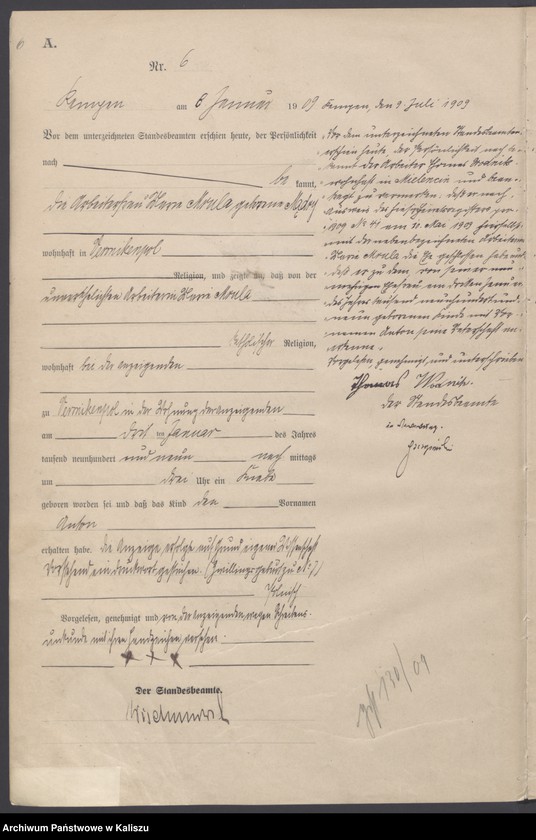 6
A.
Nr. 6
Kempen am 8 Januar 1909
Vor dem unterzeichneten Standesbeamten erschien heute, der Persönlichkeit
nach
be kannt,
die Arbeiterfrau Marie Moula geborene
wohnhaft in
Religion, und zeigte an, daß von der
unverehelichten Arbeiterin Marie Moula
katholischer Religion,
wohnhaft bei der Anzeigenden
zu in der Wohnung der Anzeigenden
am Januar des Jahres
tausend neunhundert und neun nach mittags
um drei Uhr ein Knabe
geboren worden sei und daß das Kind den Vornamen
Anton
erhalten habe. Die Anzeige erfolge auf Grund eigener Wissenschaft
Vorstehend ein Druckwort gestrichen. (Zwillingsgeburt zu N. 7)
Vorgelesen, genehmigt und von der Anzeigenden wegen Schreibens-
unkunde mit ihren Handzeichen versehen.
+ + +
Der Standesbeamte.
Kempen, den 9 Juli 1909
Vor dem unterzeichneten Standesbeamten
erschien heute, der Persönlichkeit nach be-
kannt der Arbeiter Thomas
wohnhaft in und bean-
tragt zu vermerken, daß er nach
Ausweis des Heiratsregisters pro
1909 No 41 am 11. Mai 1909 hierselbst
mit der nebenbezeichneten Arbeiterin
Marie Moula die Ehe geschlossen habe und
daß er zu dem, von seiner nun-
mehrigen Ehefrau am
des Jahres tausend neunhundert und
neun geborenen Kinde mit Vor-
namen Anton seine Vaterschaft an-
erkenne.
Vorgelesen, genehmigt und unterschrieben
Thomas
Der Standesbeamte
in Vertretung.
130/09
Archiwum Państwowe w Kaliszu